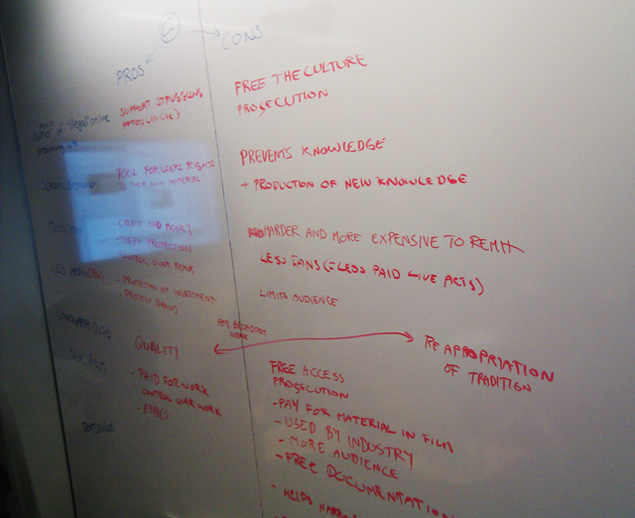 ©
CONS
PROS
FREE THE CULTURE
PROSECUTION
illegal online
SUPPORT STRUGGLING
PREVENTS KNOWLEDGE
+ PRODUCTION OF NEW KNOWLEDGE
TOOL FOR USERS RIGHTS
TO THEIR OWN MATERIAL
- CREDIT AND MONEY
- THEFT PROTECTION
CONTROL OVER
HARDER AND MORE EXPENSIVE TO REMIX
LESS FANS (= LESS PAID LIVE ACTS)
LIMITS AUDIENCE
- PROTECTION OF INVESTMENT
- PROJECT
PAY BROADCAST
QUALITY
RE APPROPRIATION
OF TRADITION
DOC FILM
- PAID FOR WORK
- CONTROL OVER WORK
- ETHICS
FREE ACCESS
PROSECUTION
- PAY FOR MATERIAL IN FILM
- USED BY INDUSTRY
- MORE AUDIENCE
- FREE DOCUMENTATION
- HELPS